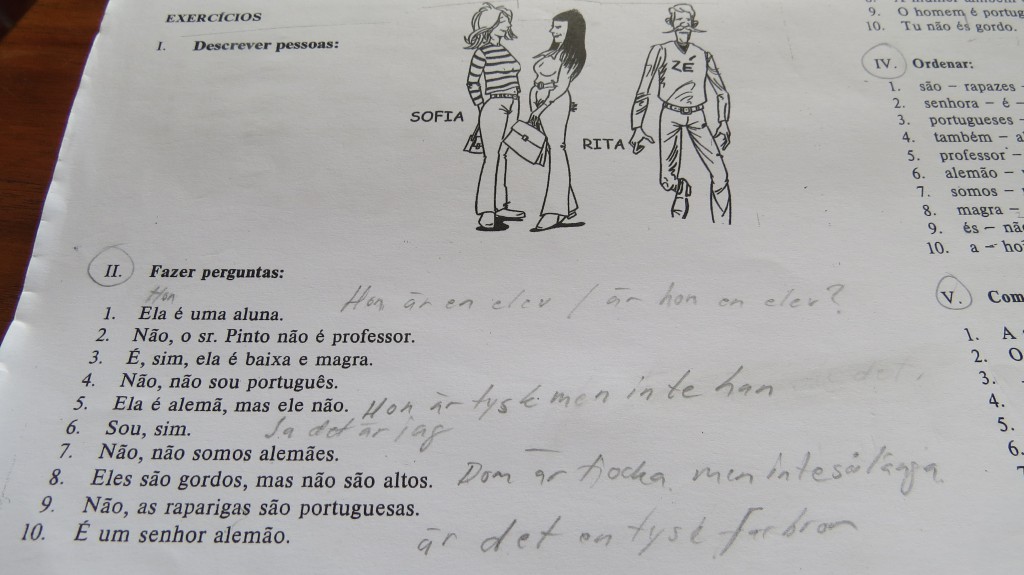 EXERCÍCIOS
I. Descrever pessoas:
SOFIA
RITA
ZÉ
II. Fazer perguntas:
Hon
Hon är en elev / är hon en elev?
1. Ela é uma aluna.
2. Não, o sr. Pinto não é professor.
3. É, sim, ela é baixa e magra.
4. Não, não sou português.
5. Ela é alemã, mas ele não. Hon är tysk men inte han
6. Sou, sim. Ja det är jag
7. Não, não somos alemães.
8. Eles são gordos, mas não são altos. Dom är tjocka men inte så långa
9. Não, as raparigas são portuguesas.
10. É um senhor alemão. är det en tysk farbror
9. O homem é portug
10. Tu não és gordo.
IV. Ordenar:
1. são – rapazes –
2. senhora – é –
3. portugueses –
4. também – a
5. professor –
6. alemão –
7. somos –
8. magra –
9. és – nã
10. a – ho
V. Com
1. A
2. O
3.
4.
5.
6.